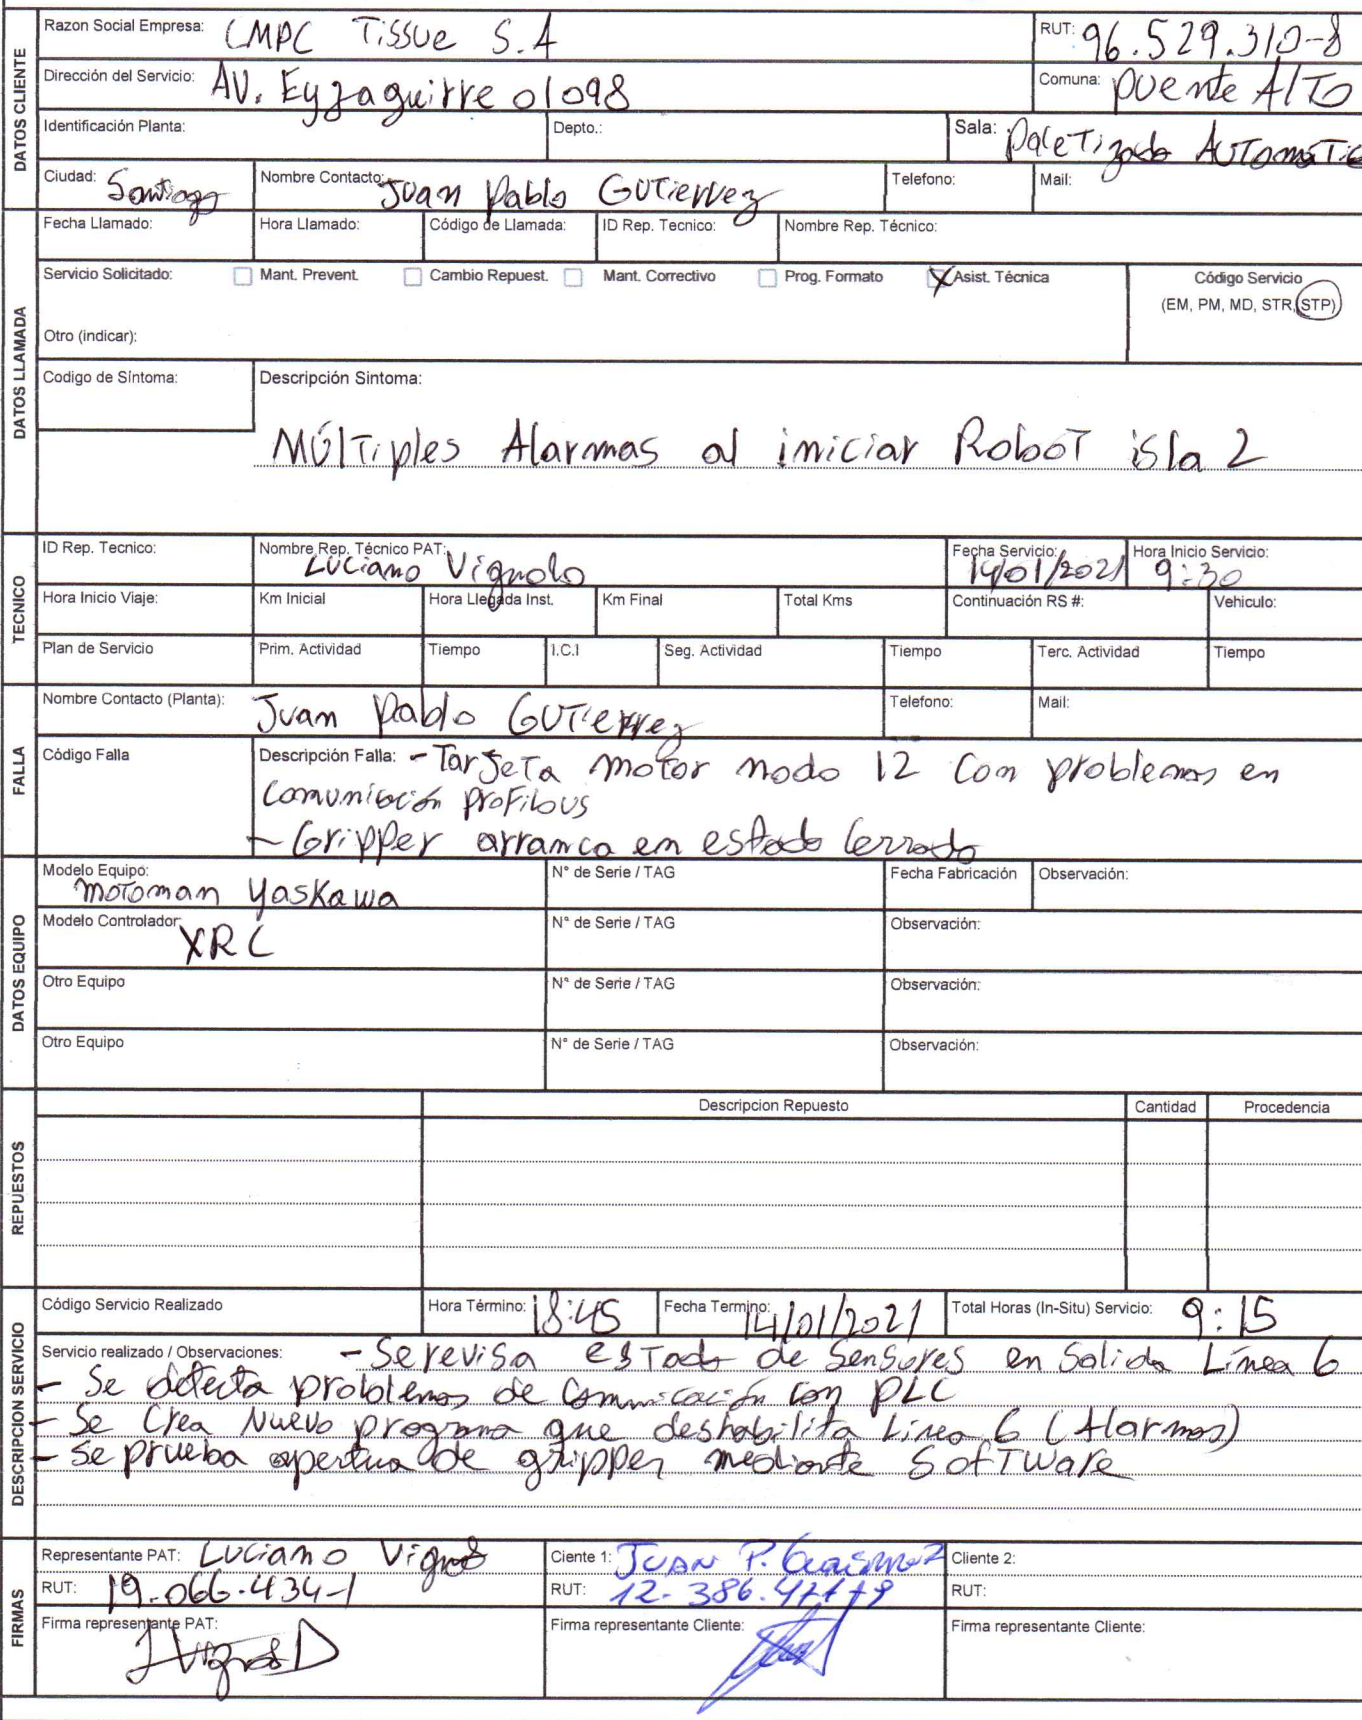 DATOS CLIENTE
Razon Social Empresa: CMPC Tissue S.A
RUT: 96.529.310-8
Dirección del Servicio: AV. Eyzaguirre 01098
Comuna: Puente Alto
Identificación Planta:
Depto.:
Sala: Paletizado Automatic
Ciudad: Santiago
Nombre Contacto: Juan Pablo Gutierrez
Telefono:
Mail:
DATOS LLAMADA
Fecha Llamado:
Hora Llamado:
Código de Llamada:
ID Rep. Tecnico:
Nombre Rep. Técnico:
Servicio Solicitado: Mant. Prevent. Cambio Repuest. Mant. Correctivo Prog. Formato X Asist. Técnica
Código Servicio
(EM, PM, MD, STR, STP)
Otro (indicar):
Codigo de Síntoma:
Descripción Sintoma:
MÚlTiples Alarmas al iniciar Robot isla 2
TECNICO
ID Rep. Tecnico:
Nombre Rep. Técnico PAT: Luciano Vignolo
Fecha Servicio: 14/01/2021
Hora Inicio Servicio: 9:30
Hora Inicio Viaje:
Km Inicial
Hora Llegada Inst.
Km Final
Total Kms
Continuación RS #:
Vehiculo:
Plan de Servicio
Prim. Actividad
Tiempo
I.C.I
Seg. Actividad
Tiempo
Terc. Actividad
Tiempo
FALLA
Nombre Contacto (Planta): Juan Pablo Gutierrez
Telefono:
Mail:
Código Falla
Descripción Falla: - Tarjeta motor nodo 12 con problemas en
comunicación profibus
- Gripper arranca en estado Cerrado
DATOS EQUIPO
Modelo Equipo: Motoman Yaskawa
N° de Serie / TAG
Fecha Fabricación
Observación:
Modelo Controlador: XRC
N° de Serie / TAG
Observación:
Otro Equipo
N° de Serie / TAG
Observación:
Otro Equipo
N° de Serie / TAG
Observación:
REPUESTOS
Descripcion Repuesto
Cantidad
Procedencia
DESCRIPCION SERVICIO
Código Servicio Realizado
Hora Término: 18:45
Fecha Termino: 14/01/2021
Total Horas (In-Situ) Servicio: 9:15
Servicio realizado / Observaciones: - Se revisa estado de Sensores en Salida Línea 6
- Se detecta problemas de comunicación con PLC
- Se Crea Nuevo programa que deshabilita Línea 6 (Alarmas)
- Se prueba apertura de gripper mediante Software
FIRMAS
Representante PAT: Luciano Vignolo
RUT: 19.066.434-1
Ciente 1: Juan P.
RUT: 12.386.
Cliente 2:
RUT:
Firma representante PAT:
Firma representante Cliente:
Firma representante Cliente: